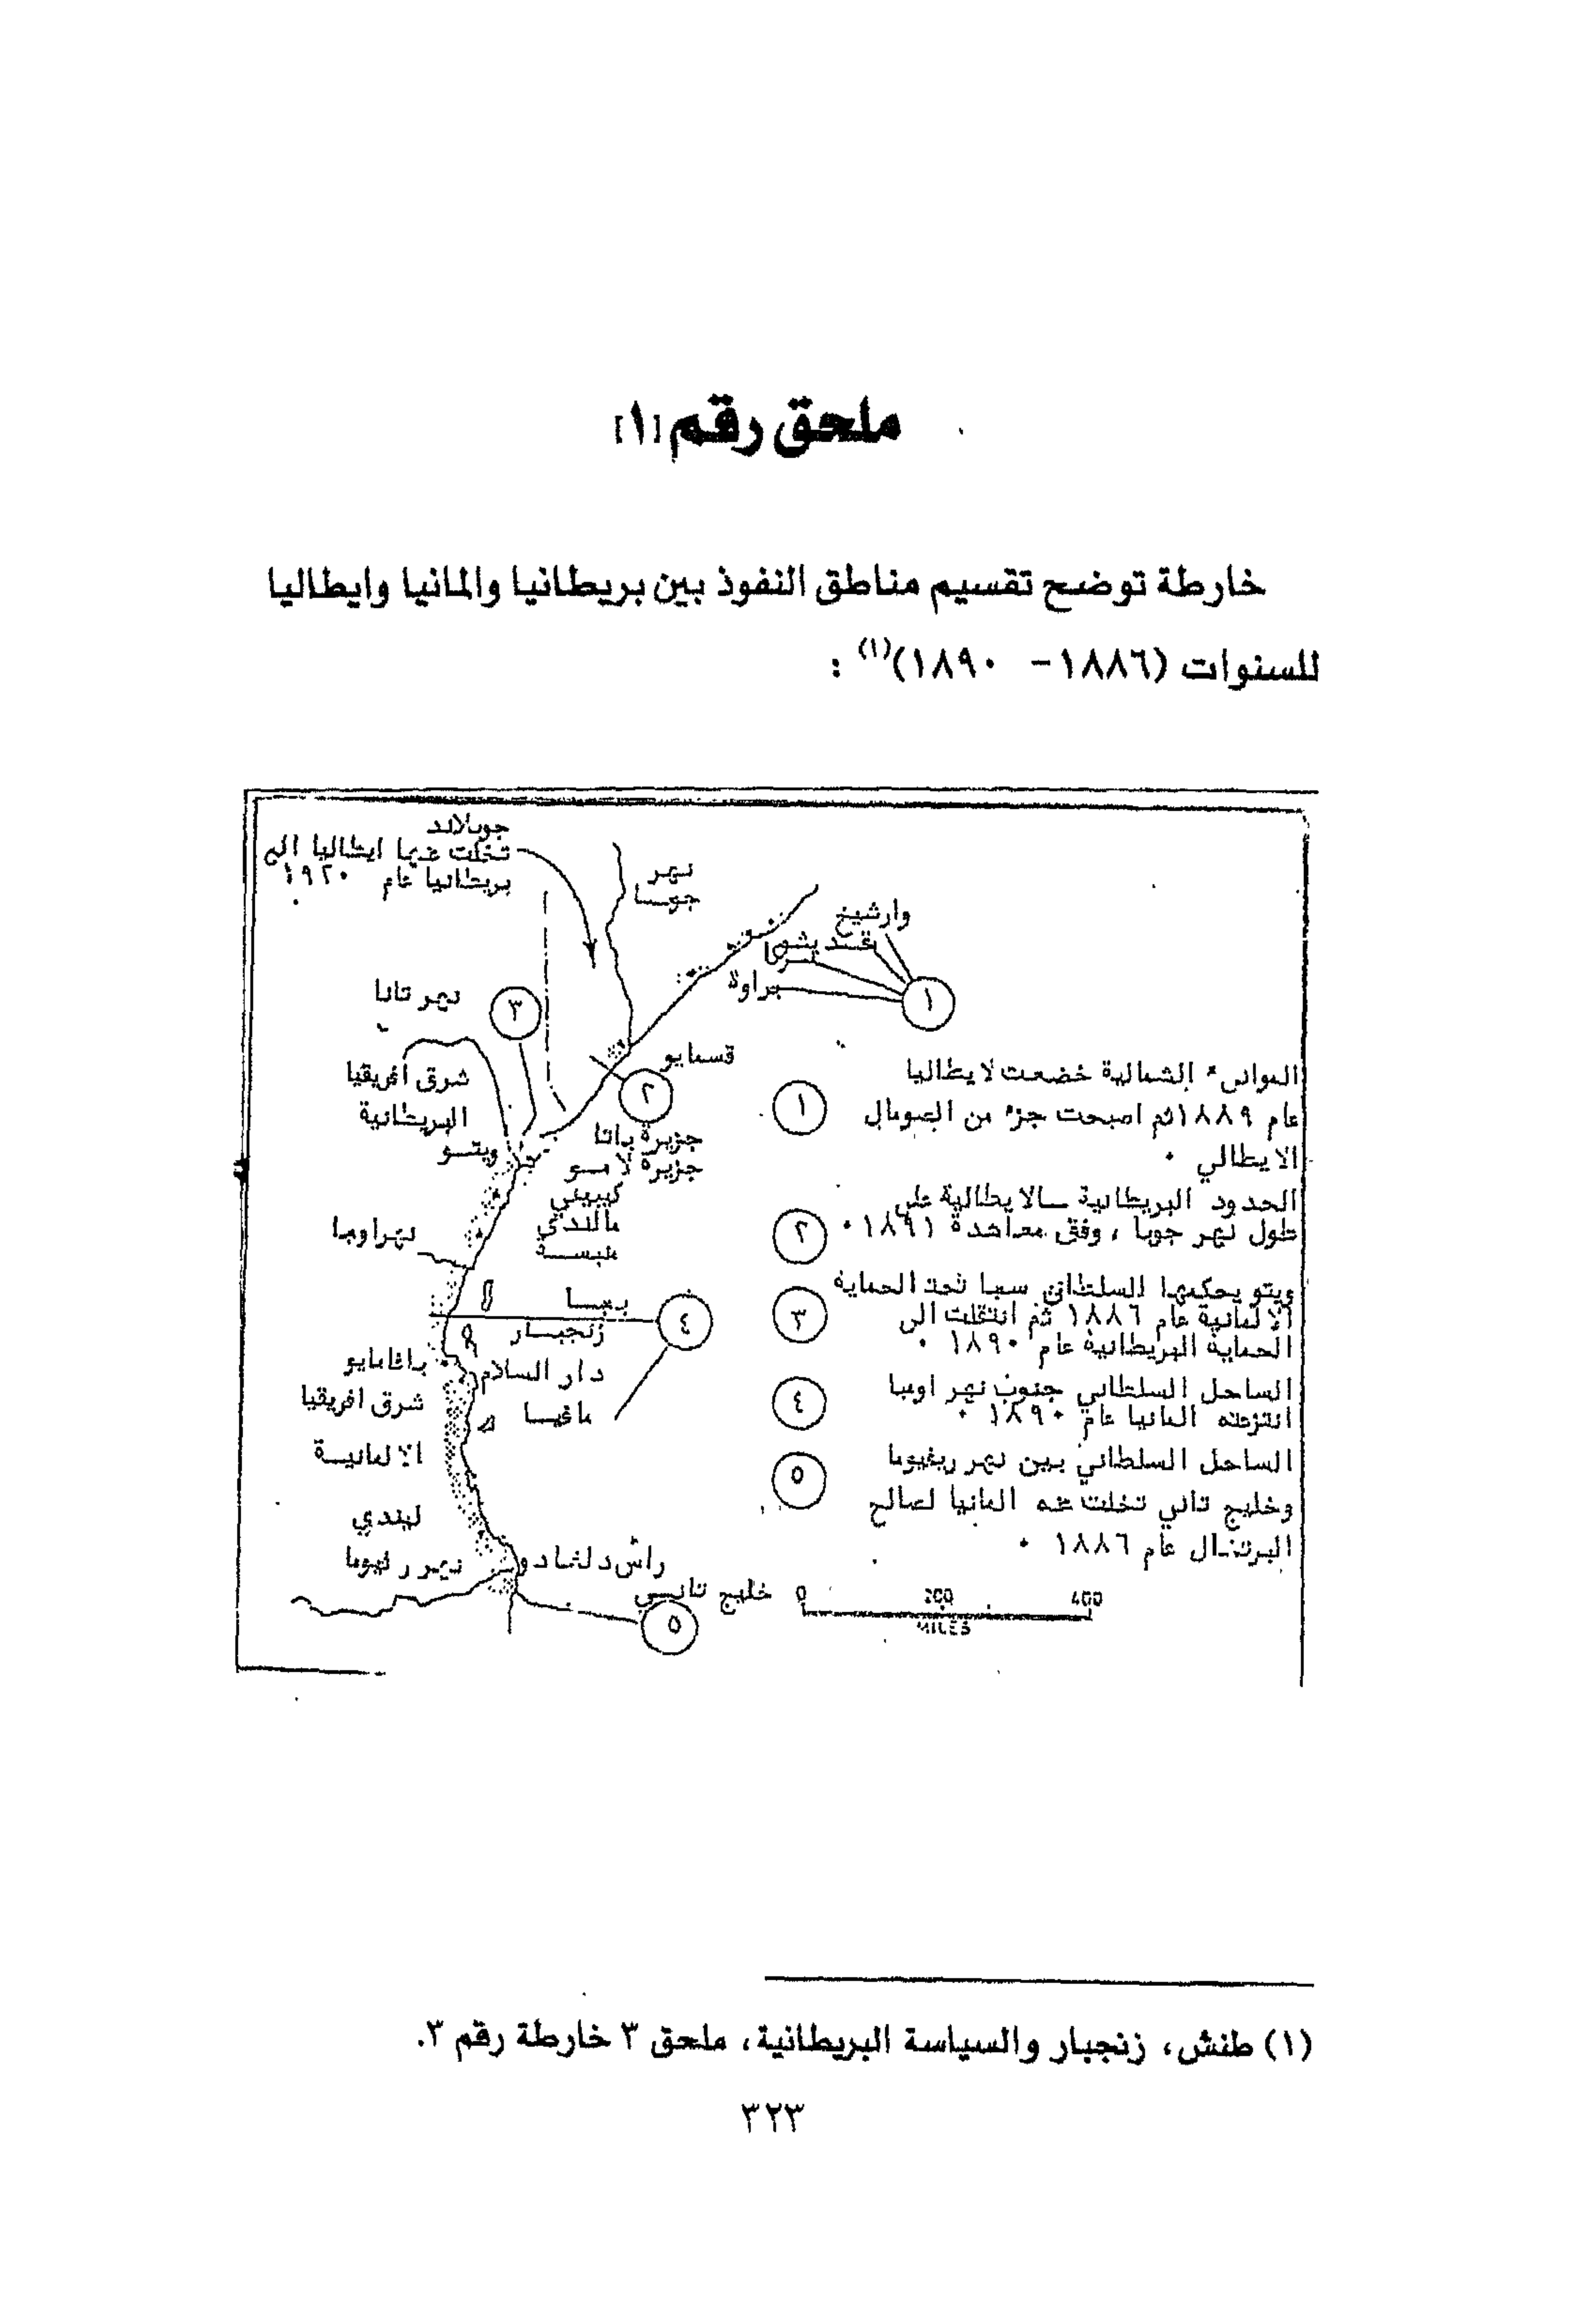 ملحق رقم [١]
خارطة توضح تقسيم مناطق النفوذ بين بريطانيا والمانيا وايطاليا
للسنوات (١٨٨٦- ١٨٩٠)(١) :
جوبالاند
تخلت عنها ايطاليا الى
بريطانيا عام ١٩٢٠
نهر
جوبا
وارشيخ
براوة
١
نهر تانا
٣
قسمايو
٢
شرق افريقيا
البريطانية
ويتو
جزيرة باتا
جزيرة لامو
مالندي
نهر اومبا
بمبا
زنجبار
٤
باغامايو
دار السلام
شرق افريقيا
الالمانية
مافيا
ليندي
راس دلغادو
خليج تانجي
٥
١
الموانىء الشمالية خضعت لايطاليا
عام ١٨٨٩ ثم اصبحت جزء من الصومال
الايطالي ٠
٢
الحدود البريطانية ـ الايطالية على
طول نهر جوبا ، وفق معاهدة ١٨٩١ ٠
٣
ويتو يحكمها السلطان سمبا تحت الحماية
الالمانية عام ١٨٨٦ ثم انتقلت الى
الحماية البريطانية عام ١٨٩٠ ٠
٤
الساحل السلطاني جنوب نهر اومبا
انتزعته المانيا عام ١٨٩٠ ٠
٥
الساحل السلطاني بين نهر ريفيوما
وخليج تانجي تخلت عنه المانيا لصالح
البرتغال عام ١٨٨٦ ٠
0 200 400
MILES
(١) طنش، زنجبار والسياسة البريطانية، ملحق ٣ خارطة رقم ٣.
٣٢٣